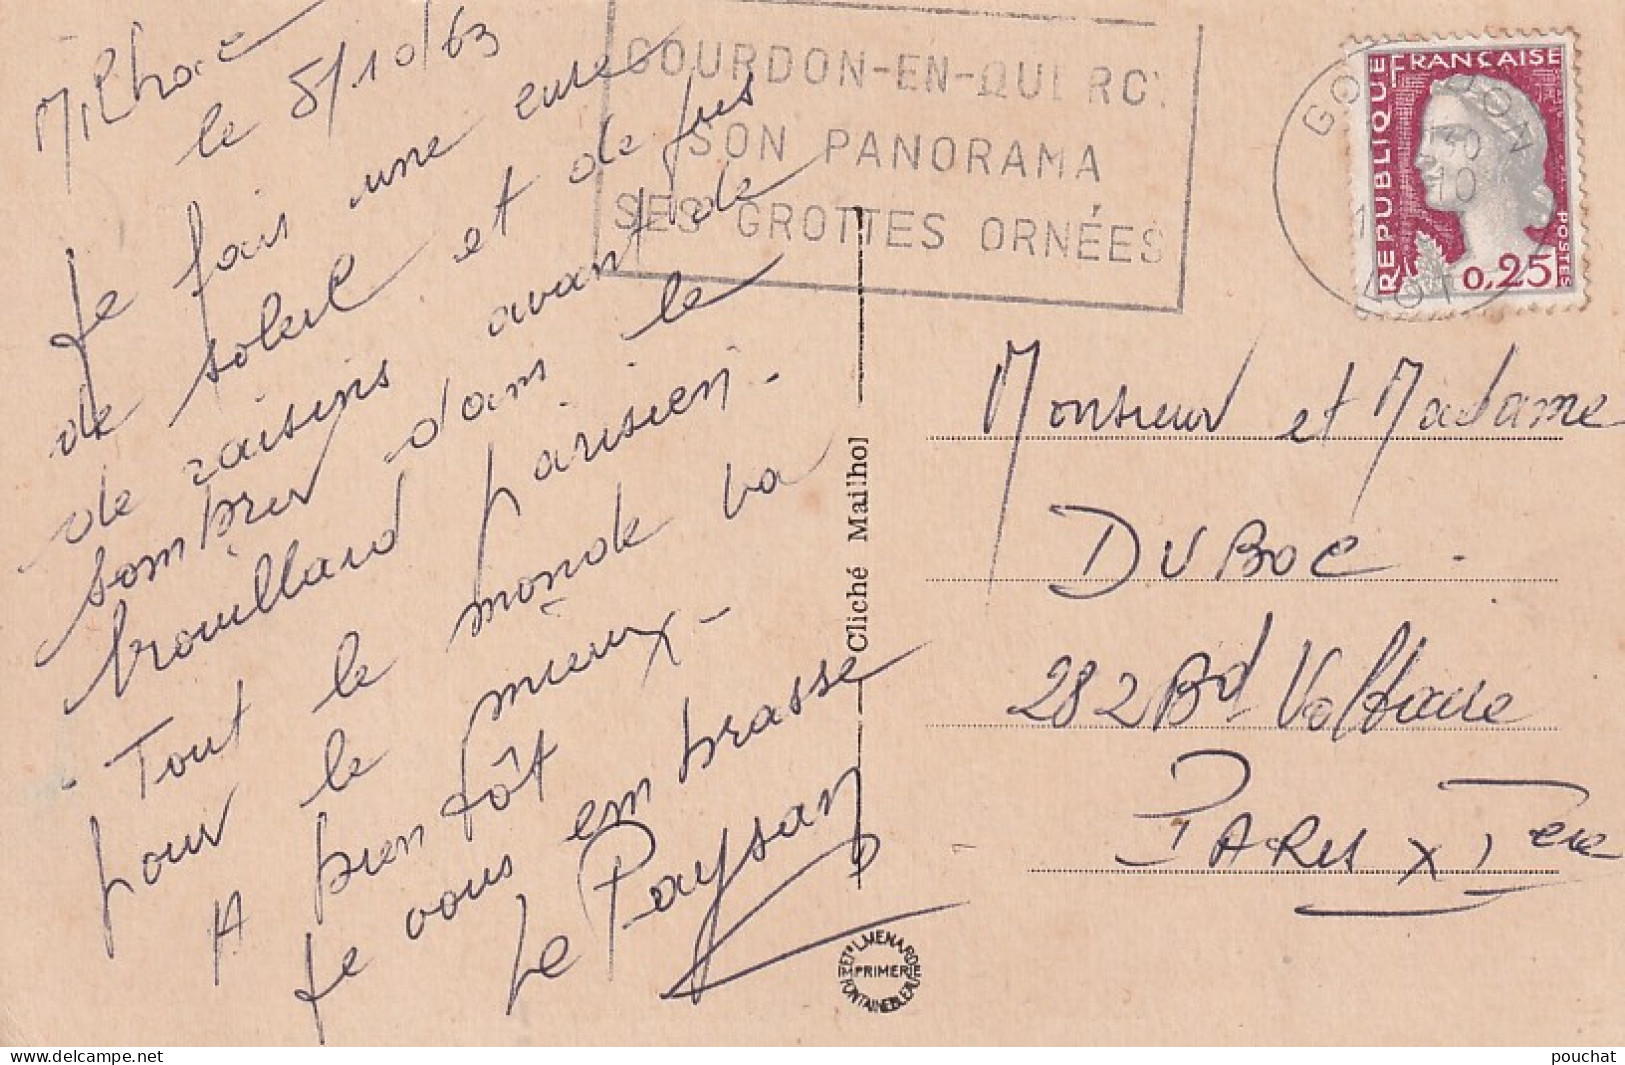 Milhac
le 5/10/63
Je fais une cure
de soleil et de jus
de raisins avant de
sombrer dans le
brouillard parisien.
Tout le monde va
pour le mieux.
A bientôt
Je vous embrasse
Le Paysan
GOURDON-EN-QUERCY
SON PANORAMA
SES GROTTES ORNÉES
GOURDON
30
10
LOT
REPUBLIQUE FRANÇAISE
POSTES
0,25
Monsieur et Madame
DUBOC.
282 Bd Voltaire
PARIS XIème
Cliché Mailhol
IMPRIMERIE
ETS L. MENARD
FONTAINEBLEAU
pouchat